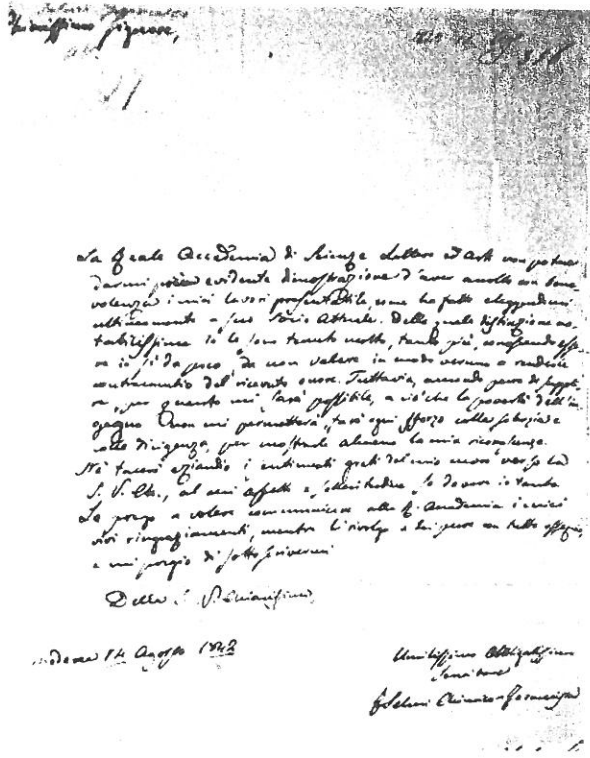 Chiarissimo Signore,
La Reale Accademia di Scienze Lettere ed Arti non potea
darmi più evidente dimostrazione d'aver accolto con bene
volenza i miei lavori presentatile, come ha fatto eleggendomi
ultimamente a suo Socio Attuale. Della quale distinzione no
tabilissima io le sono tenuto molto, tanto più, conoscendo esse
re io sì da poco da non valere in modo veruno a rendere
contraccambio del ricevuto onore. Tuttavia, avendo pure di suppli
re, per quanto mi sarà possibile, a ciò che la povertà dell'in
gegno non mi permetterà, farò ogni sforzo colla
colla diligenza, per mostrarle almeno la mia riconoscenza.
Nè tacerò eziandio i sentimenti grati del mio cuore verso la
S. V. Ch., al cui affetto e sollecitudine so dovere io tanto
La prego a voler comunicare alla R. Accademia i miei
vivi ringraziamenti, mentre li rivolgo a Lei pure con tutto
e mi pregio di sottoscrivermi
Della S. V. Chiarissima
Modena 14 Agosto 1842
Umilissimo Obbligatissimo
Servitore
F Selmi Chimico-Farmacista